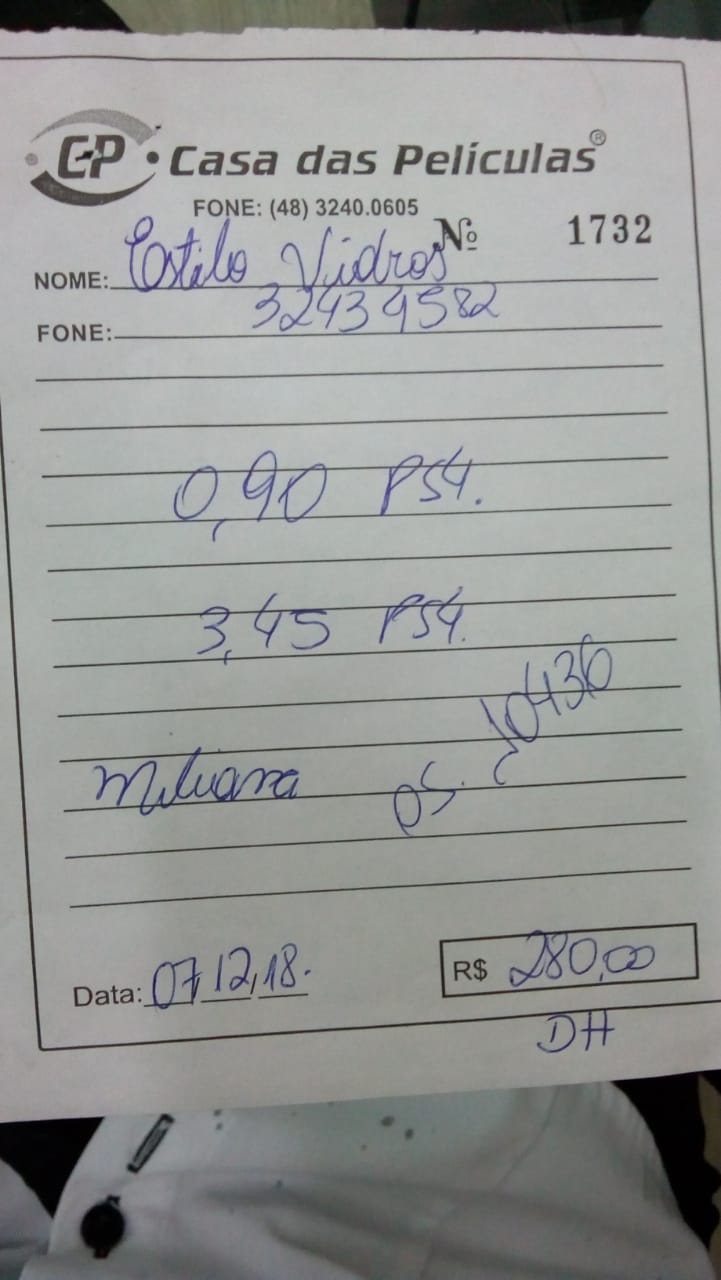 CP • Casa das Películas®
FONE: (48) 3240.0605
Nº 1732
NOME: Estilo Vidros
FONE: 32434582
0,90 PS4.
3,45 PS4.
OS. 10436
Data: 07,12,18.
R$ 280,00
DH